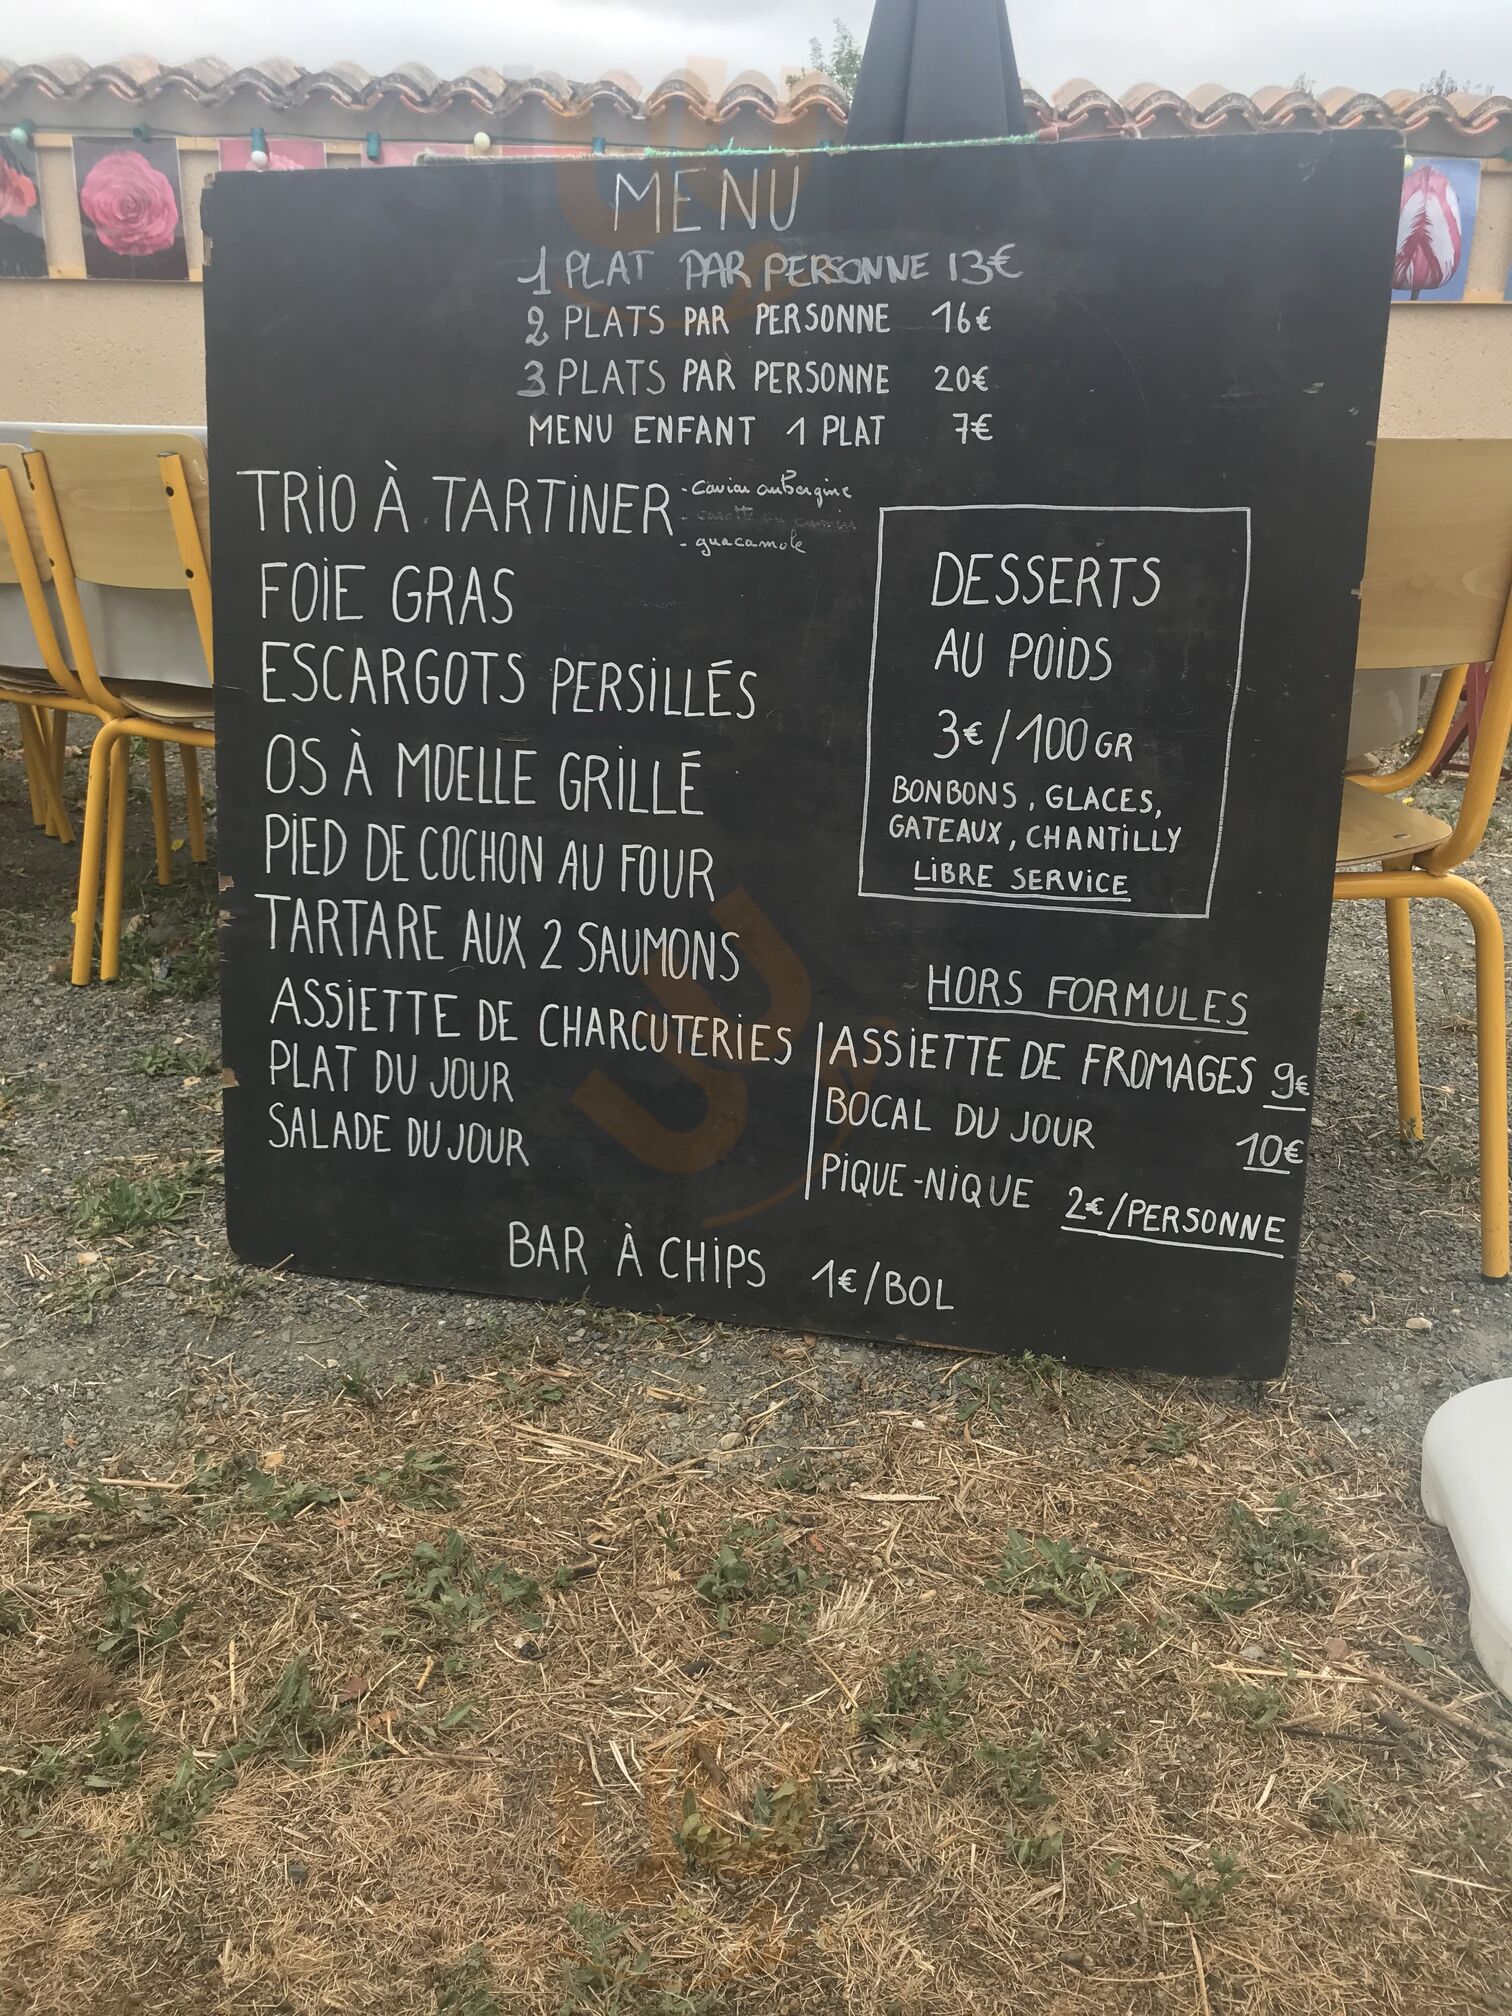 MENU
1 PLAT PAR PERSONNE 13€
2 PLATS PAR PERSONNE 16€
3 PLATS PAR PERSONNE 20€
MENU ENFANT 1 PLAT 7€
TRIO À TARTINER
- caviar aubergine
- carotte au cumin
- guacamole
FOIE GRAS
ESCARGOTS PERSILLÉS
OS À MOELLE GRILLÉ
PIED DE COCHON AU FOUR
TARTARE AUX 2 SAUMONS
ASSIETTE DE CHARCUTERIES
PLAT DU JOUR
SALADE DU JOUR
DESSERTS
AU POIDS
3€/100GR
BONBONS, GLACES,
GATEAUX, CHANTILLY
LIBRE SERVICE
HORS FORMULES
ASSIETTE DE FROMAGES 9€
BOCAL DU JOUR 10€
PIQUE-NIQUE 2€/PERSONNE
BAR À CHIPS 1€/BOL